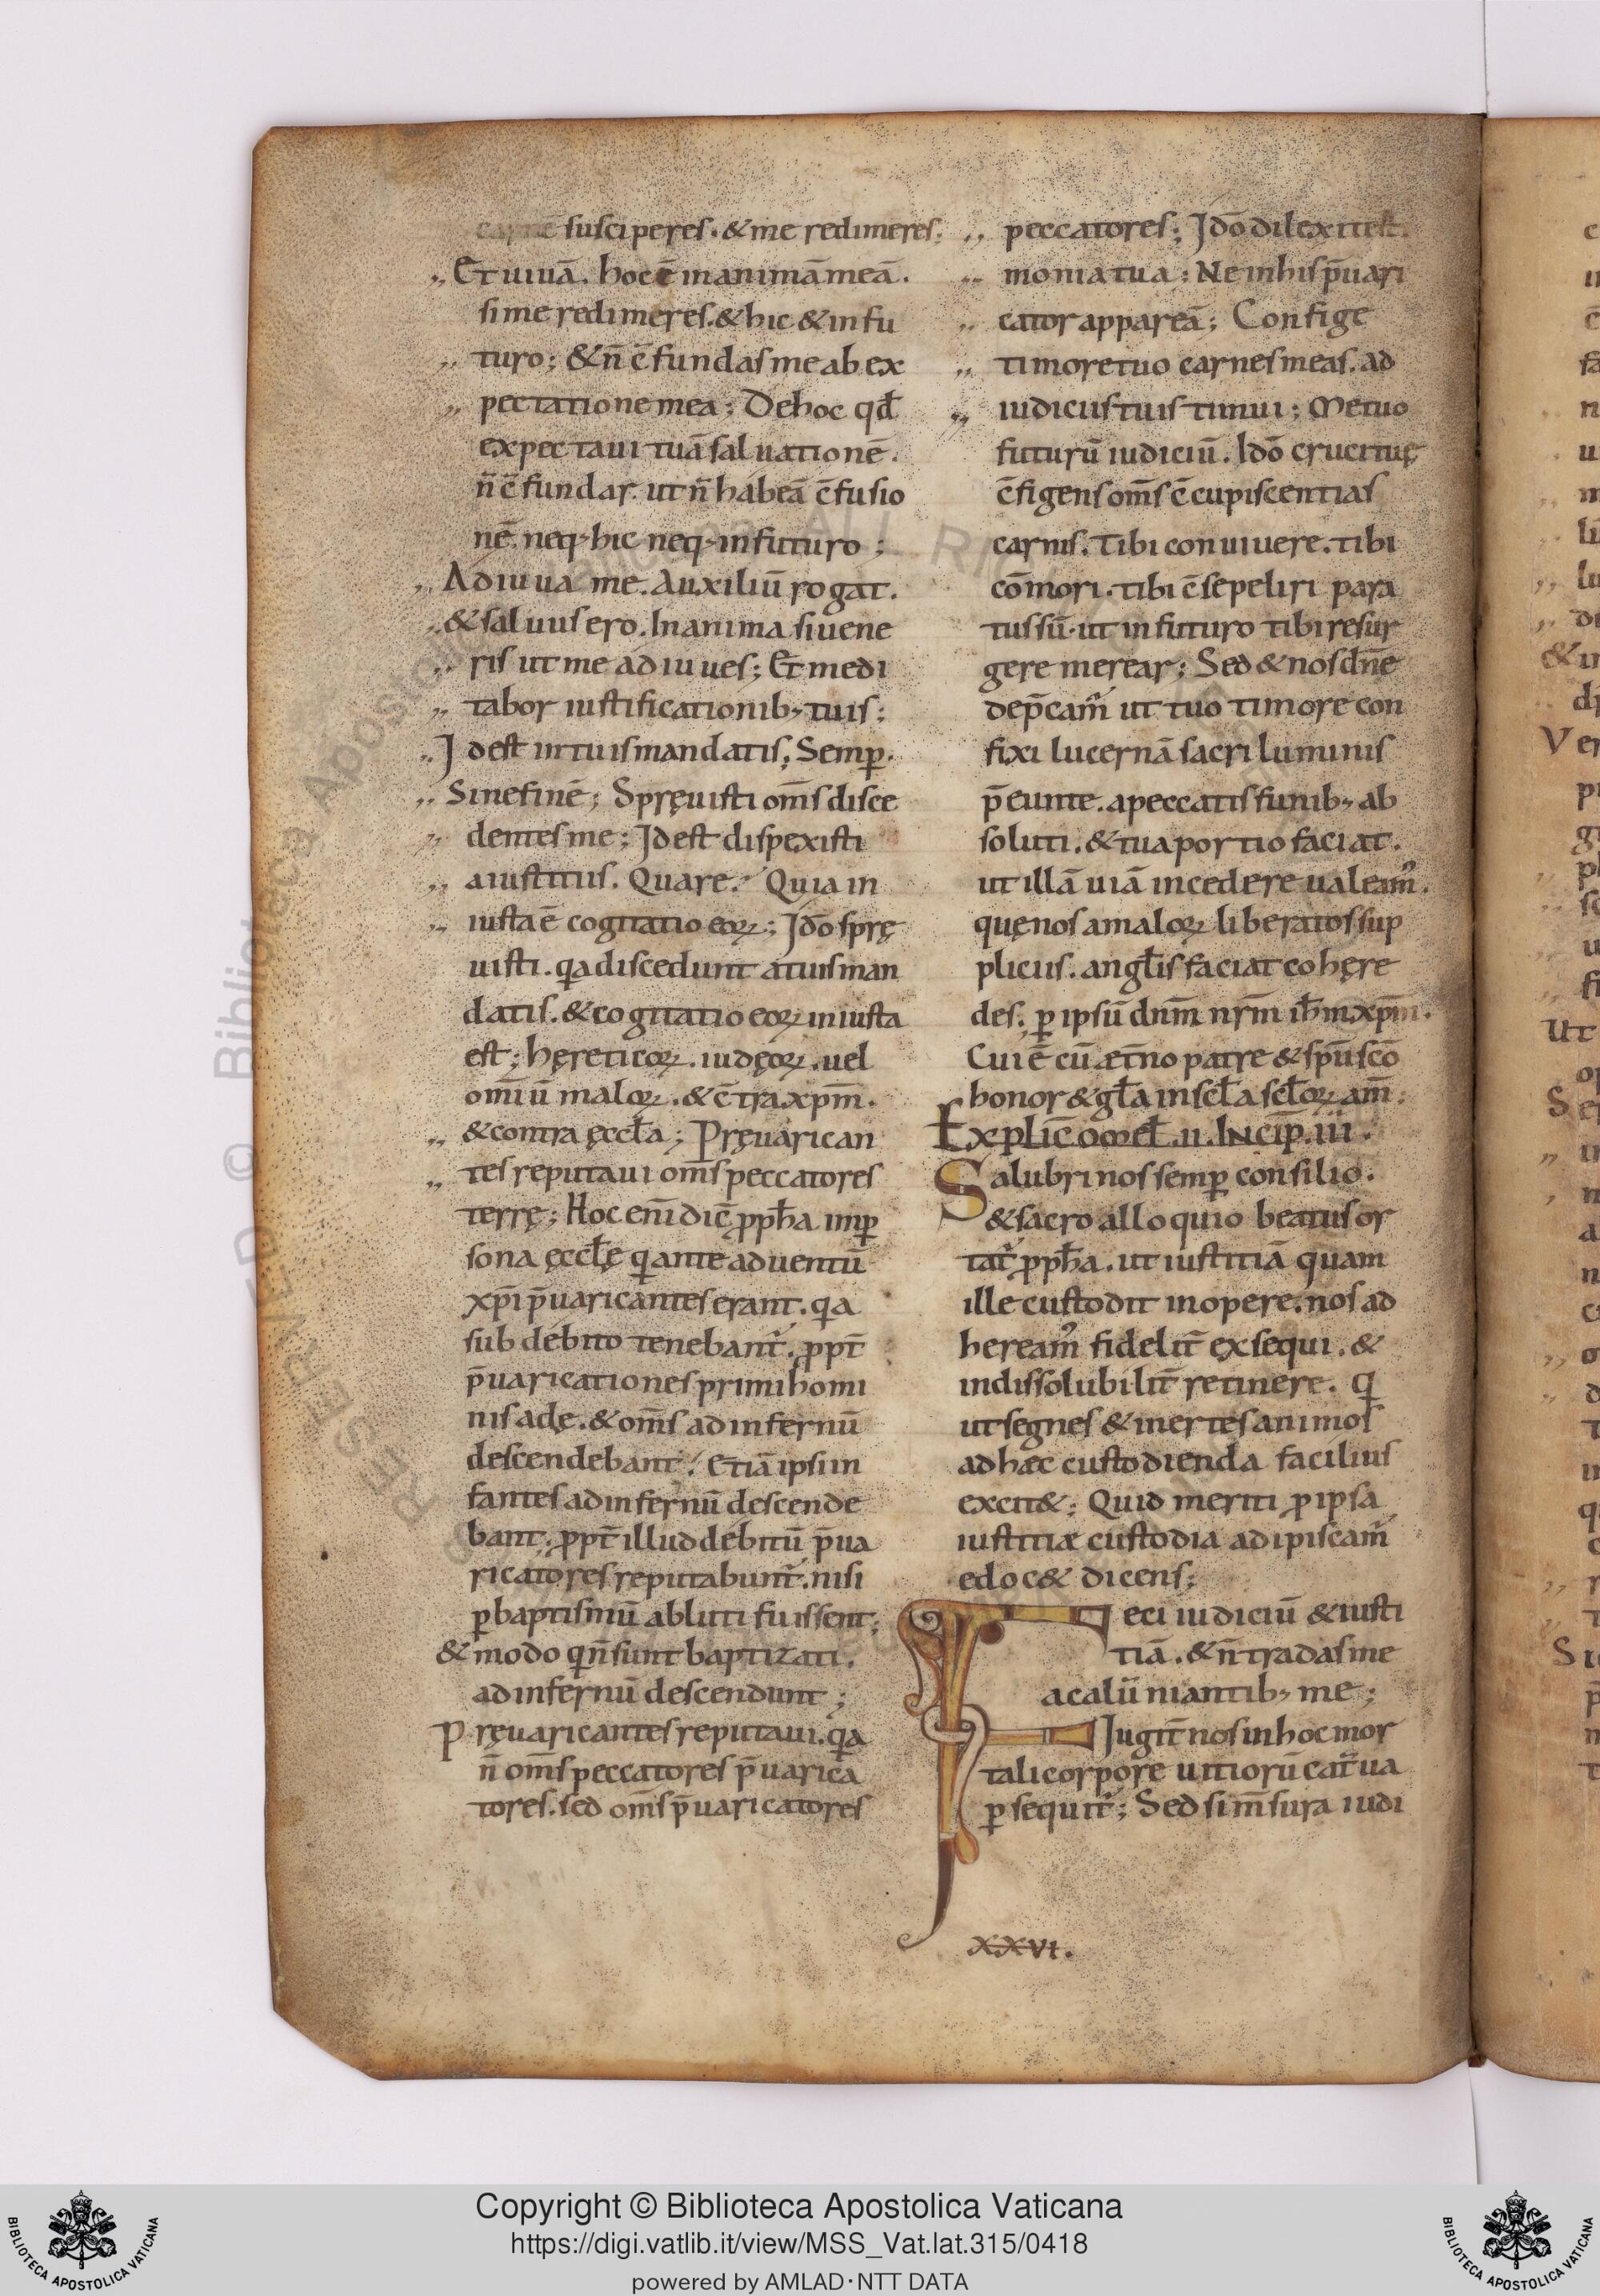 carnē susciperes. & me redimeres;
,, Et uiuā. hoc ē in animā meā.
si me redimeres. & hic & in fu
,, turo; & n̄ c̄fundas me ab ex
,, pectatione mea; De hoc qđ
expectaui tuā saluationē.
n̄ c̄fundar. ut n̄ habeā c̄fusio
nē. neq; hic neq; in futuro;
,, Adiuua me. Auxiliū rogat.
,, & saluus ero. In anima si uene
,, ris ut me adiuues; Et medi
,, tabor iustificationib; tuis;
,, Id est in tuis mandatis, Semp̲.
,, Sine finē; Spręuisti om̄s disce
,, dentes me; Id est dispexisti
,, a iustitiis. Quare. Quia in
,, iusta ē cogitatio eoꝝ; Idō sprę
uisti. qa discedunt a tuis man
datis. & cogitatio eoꝝ iniusta
est; hęreticoꝝ. iudęoꝝ. uel
om̄iū maloꝝ. & c̄tra xpm̄.
,, & contra ęccła; Pręuarican
,, tes reputaui om̄s peccatores
terrę; Hoc eni̅ dic̄ ꝓpħa in ꝑ
sona ęccłę q ante aduentū
xp̄i p̄uaricantes erant. qa
sub debito tenebant᷑. ꝓpt̄
p̄uaricationes primi homi
nis adę. & om̄s ad infernū
descendebant. Etiā ipsi in
fantes ad infernū descende
bant. ꝓpt̄ illud debitū p̄ua
ricatores reputabunt᷑. nisi
ꝑ baptismū abluti fuissent;
& modo q n̄ sunt baptizati.
ad infernū descendunt;
Pręuaricantes reputaui. qa
n̄ om̄s peccatores p̄uarica
tores. sed om̄s p̄uaricatores
,, peccatores; Idō dilexi test.
,, monia tua; Ne in his p̄uari
,, cator appareā; Confige
,, timore tuo carnes meas. ad
,, iudiciis tuis timui; Metuo
futurū iudiciū. Idō cruci tuę
c̄figens om̄s c̄cupiscentias
carnis. Tibi conuiuere. tibi
cōmori. tibi c̄sepeliri para
tus sū. ut in futuro tibi resur
gere merear; Sed & nos dn̄e
dep̄cam᷑ ut tuo timore con
fixi lucernā sacri luminis
p̄eunte. a peccatis funib; ab
soluti. & tua portio faciat.
ut illā uiā incedere ualeam᷒.
quę nos a maloꝝ liberatos sup
pliciis. angłis faciat cohęre
des. ꝑ ipsū dnm̄ nr̄m iħm xpm̄.
Cui ē cū æt̄no patre & sp̄u scō
honor & gła in scła scłoꝝ am̄;
Explic̄ omeł. II. Incip̄. III.
Salubri nos semꝑ consilio.
& sacro alloquio beatus or
tat᷑ ꝓpħa. ut iustitiā quam
ille custodit in opere. nos ad
heream᷒ fidelit̄ exsequi. &
indissolubilit̄ retinere. q
ut segnes & inertes animos
ad hæc custodienda facilius
excit&; Quid meriti ꝓ ipsa
iustitiæ custodia adipiscam᷑
edoc& dicens;
Feci iudiciū & iusti
tiā. & n̄ tradas me
a calūniantib; me;
Jugit̄ nos in hoc mor
tali corpore uitiorū cat̄ua
ꝑsequit᷑; Sed si m̄sura iudi
XXVI.
Copyright © Biblioteca Apostolica Vaticana
https://digi.vatlib.it/view/MSS_Vat.lat.315/0418
powered by AMLAD·NTT DATA
BIBLIOTECA APOSTOLICA VATICANA
BIBLIOTECA APOSTOLICA VATICANA